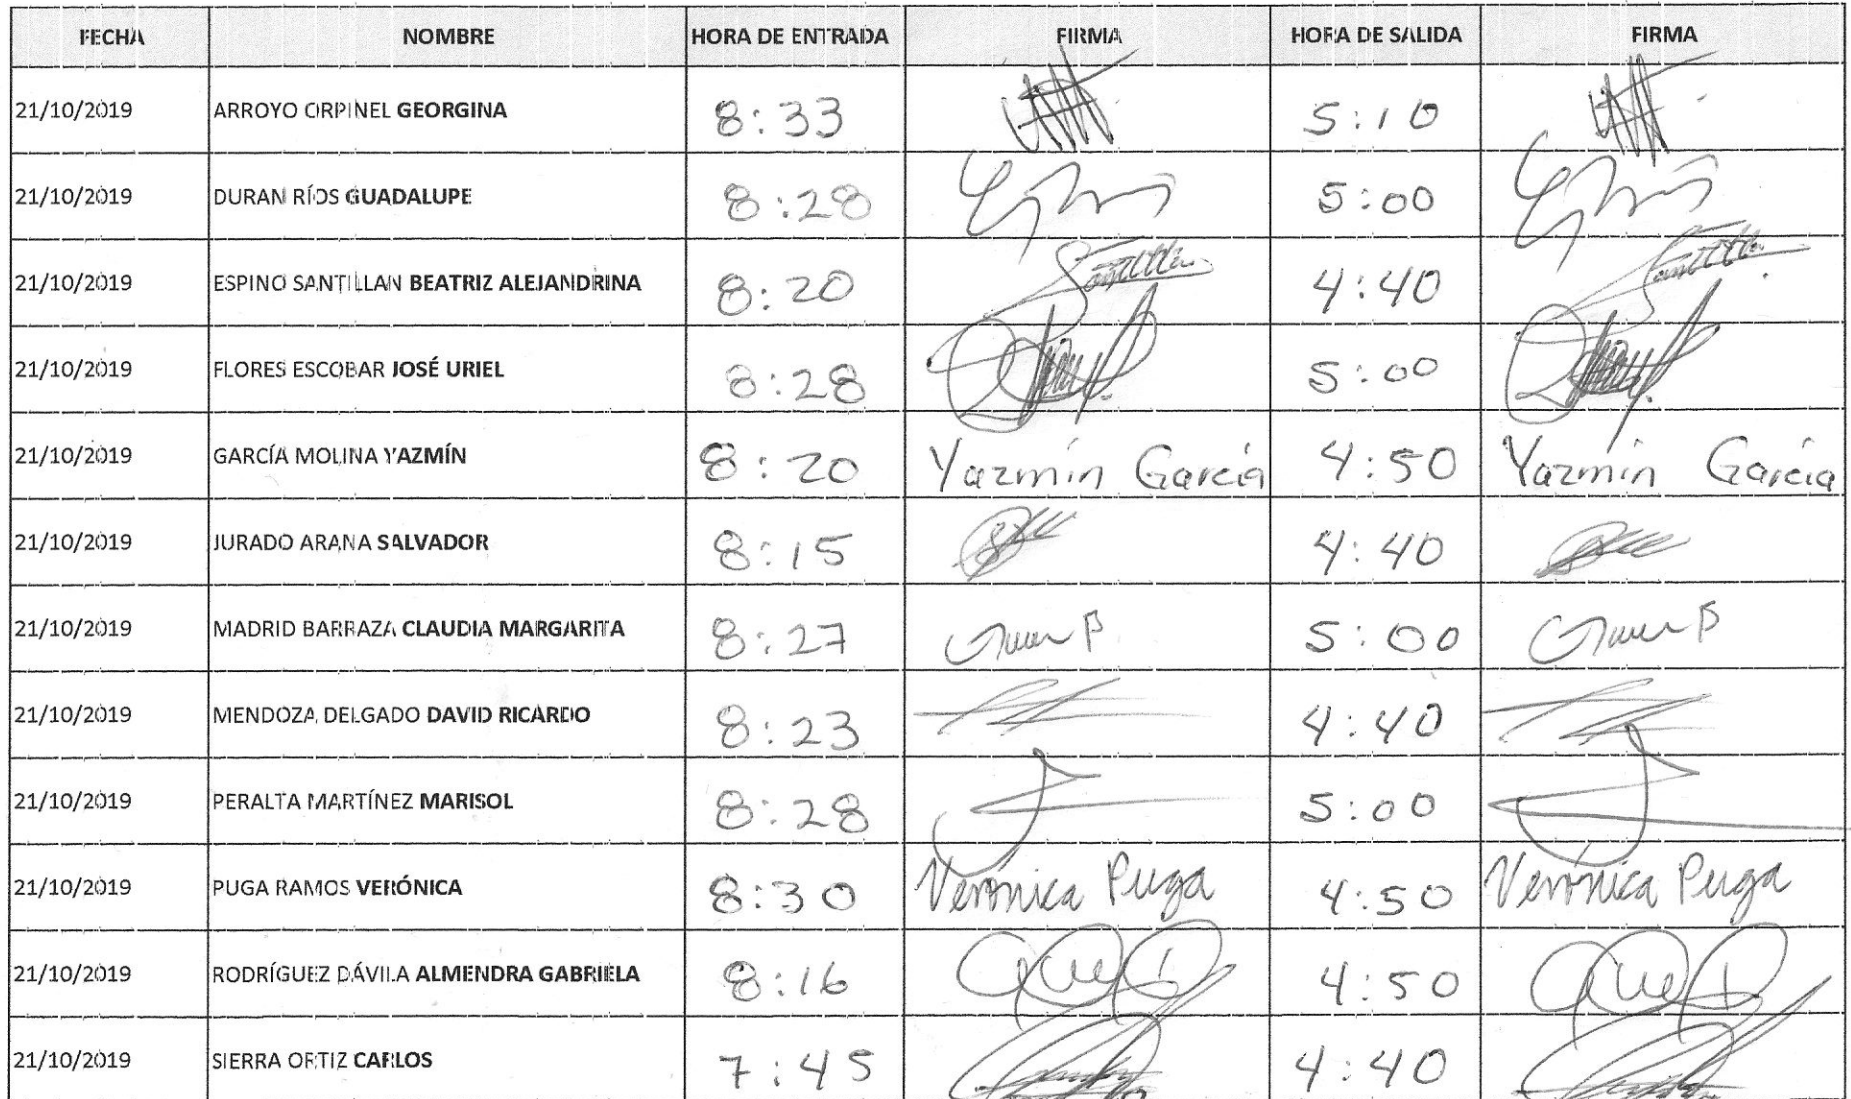 FECHA NOMBRE HORA DE ENTRADA FIRMA HORA DE SALIDA FIRMA
21/10/2019 ARROYO ORPINEL GEORGINA 8:33 5:10
21/10/2019 DURAN RÍOS GUADALUPE 8:28 5:00
21/10/2019 ESPINO SANTILLAN BEATRIZ ALEJANDRINA 8:20 4:40
21/10/2019 FLORES ESCOBAR JOSÉ URIEL 8:28 5:00
21/10/2019 GARCÍA MOLINA YAZMÍN 8:20 Yazmín García 4:50 Yazmín García
21/10/2019 JURADO ARANA SALVADOR 8:15 4:40
21/10/2019 MADRID BARRAZA CLAUDIA MARGARITA 8:27 5:00
21/10/2019 MENDOZA DELGADO DAVID RICARDO 8:23 4:40
21/10/2019 PERALTA MARTÍNEZ MARISOL 8:28 5:00
21/10/2019 PUGA RAMOS VERÓNICA 8:30 Verónica Puga 4:50 Verónica Puga
21/10/2019 RODRÍGUEZ DÁVILA ALMENDRA GABRIELA 8:16 4:50
21/10/2019 SIERRA ORTIZ CARLOS 7:45 4:40